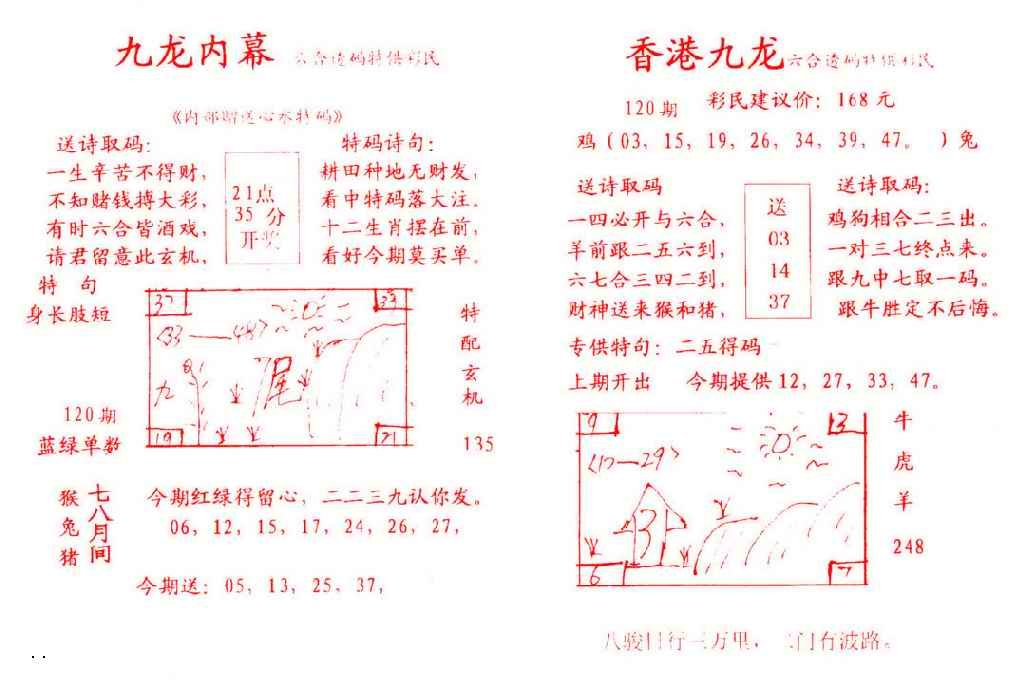 九龙内幕 六合透码特供彩民
《内部赠送心水特码》
送诗取码:
一生辛苦不得财,
不知赌钱搏大彩,
有时六合皆酒戏,
请君留意此玄机,
21点
35 分
开奖
特码诗句:
耕田种地无财发,
看中特码落大注。
十二生肖摆在前,
看好今期莫买单。
特 句
身长肢短
120期
蓝绿单数
37
23
<33——48>
九
7尾
19
21
特
配
玄
机
135
猴
兔
猪
七八月间
今期红绿得留心, 二二三九认你发。
06, 12, 15, 17, 24, 26, 27,
今期送: 05, 13, 25, 37,
香港九龙 六合透码特供彩民
120期 彩民建议价: 168元
鸡 (03, 15, 19, 26, 34, 39, 47。 ) 兔
送诗取码
一四必开与六合,
羊前跟二五六到,
六七合三四二到,
财神送来猴和猪,
送
03
14
37
送诗取码:
鸡狗相合二三出。
一对三七终点来。
跟九中七取一码。
跟牛胜定不后悔。
专供特句: 二五得码
上期开出 今期提供12, 27, 33, 47。
9
13
<17—29>
3
6
牛
虎
羊
248
八骏日行三万里, 门有波路。